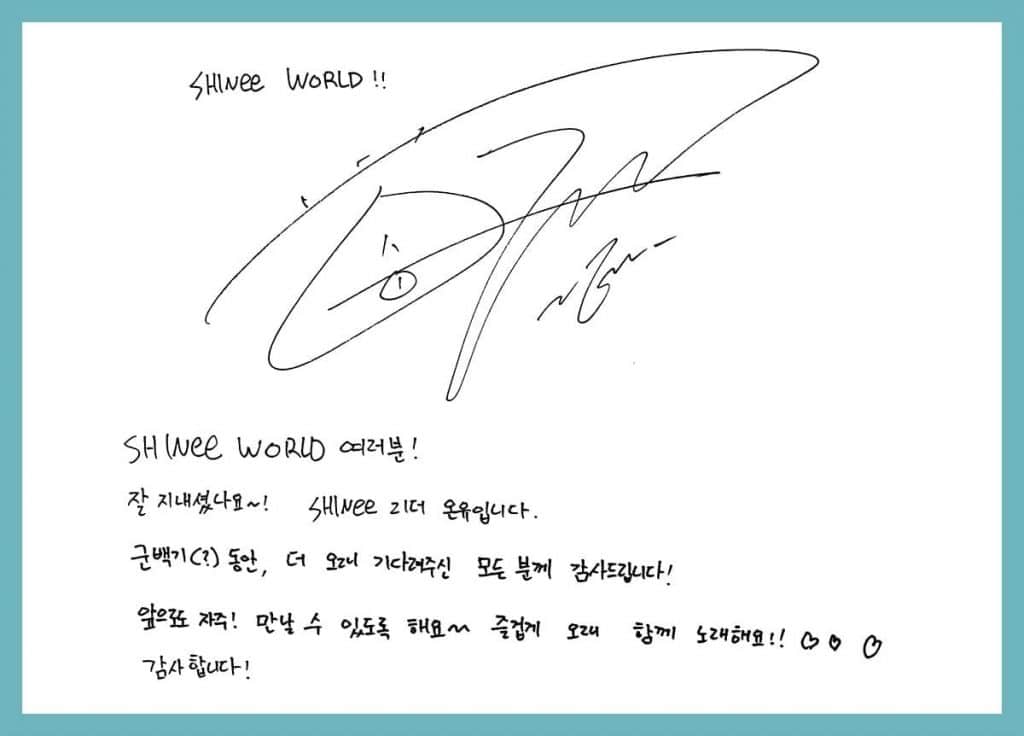 SHINee WORLD!!
SHINee WORLD 여러분!
잘 지내셨나요~! SHINee 리더 온유입니다.
군백기(?) 동안, 더 오래 기다려주신 모든 분께 감사드립니다!
앞으로도 자주! 만날 수 있도록 해요~ 즐겁게 오래 함께 노래해요!! ♡♡ ♡
감사합니다!